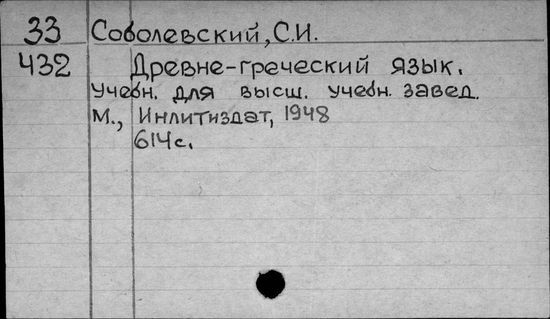 33 Соболевский, С.И.
432 Древне-греческий язык.
Учебн. для высш. учебн. завед.
М., Инлитиздат, 1948
614с.